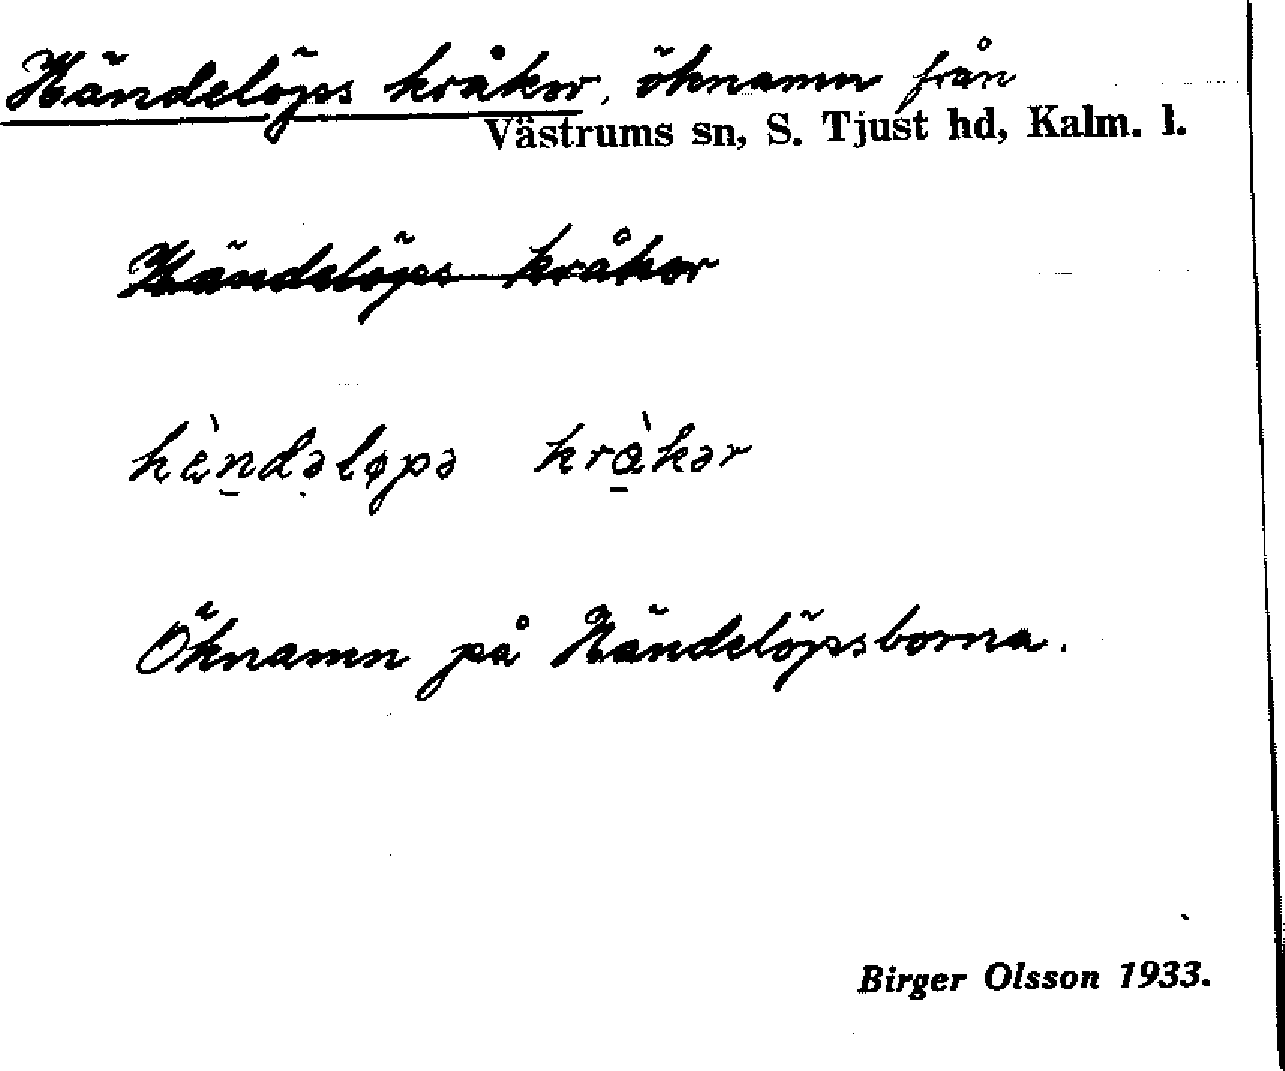 Händelöps kråkor, öknamn från
Västrums sn, S. Tjust hd, Kalm. l.
Händelöps kråkor
hä̀ndəløpə krå̀kər
Öknamn på Händelöpsborna.
Birger Olsson 1933.